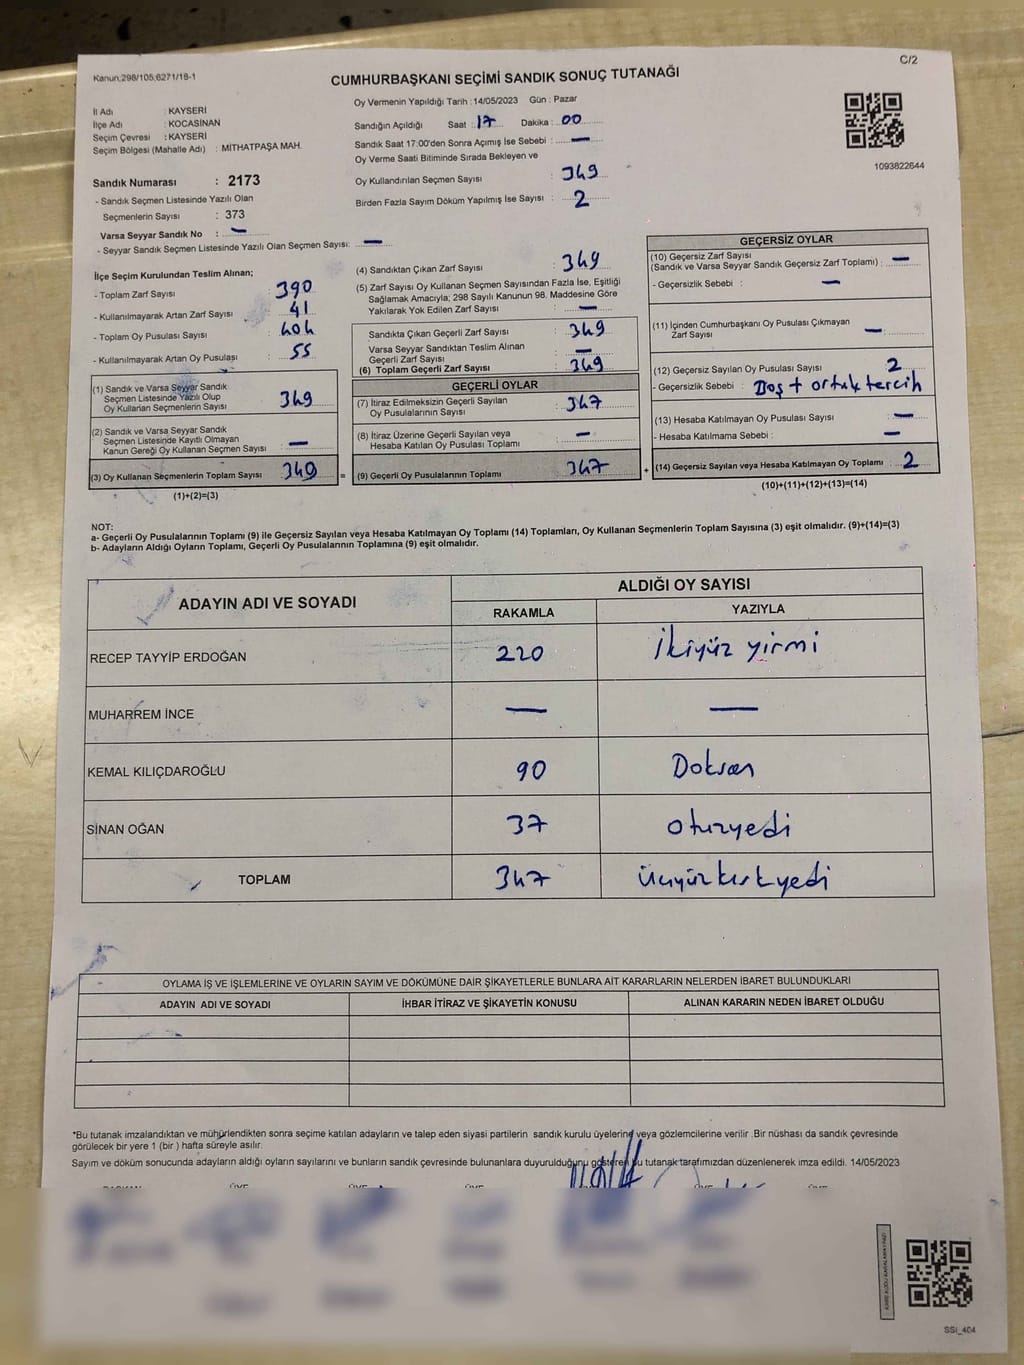 Kanun;298/105;6271/18-1
C/2
CUMHURBAŞKANI SEÇİMİ SANDIK SONUÇ TUTANAĞI
Oy Vermenin Yapıldığı Tarih : 14/05/2023 Gün : Pazar
İl Adı : KAYSERİ
İlçe Adı : KOCASİNAN
Seçim Çevresi : KAYSERİ
Seçim Bölgesi (Mahalle Adı) : MİTHATPAŞA MAH.
Sandığın Açıldığı Saat : 17 Dakika : 00
Sandık Saat 17:00'den Sonra Açımış İse Sebebi : —
Oy Verme Saati Bitiminde Sırada Bekleyen ve
Oy Kullandırılan Seçmen Sayısı : 349
Birden Fazla Sayım Döküm Yapılmış İse Sayısı : 2
1093822644
Sandık Numarası : 2173
- Sandık Seçmen Listesinde Yazılı Olan
Seçmenlerin Sayısı : 373
Varsa Seyyar Sandık No : —
- Seyyar Sandık Seçmen Listesinde Yazılı Olan Seçmen Sayısı: —
İlçe Seçim Kurulundan Teslim Alınan;
- Toplam Zarf Sayısı : 390
- Kullanılmayarak Artan Zarf Sayısı : 41
- Toplam Oy Pusulası Sayısı : 404
- Kullanılmayarak Artan Oy Pusulası : 55
(1) Sandık ve Varsa Seyyar Sandık
Seçmen Listesinde Yazılı Olup
Oy Kullanan Seçmenlerin Sayısı 349
(2) Sandık ve Varsa Seyyar Sandık
Seçmen Listesinde Kayıtlı Olmayan
Kanun Gereği Oy Kullanan Seçmen Sayısı —
(3) Oy Kullanan Seçmenlerin Toplam Sayısı 349 =
(1)+(2)=(3)
(4) Sandıktan Çıkan Zarf Sayısı : 349
(5) Zarf Sayısı Oy Kullanan Seçmen Sayısından Fazla İse, Eşitliği
Sağlamak Amacıyla; 298 Sayılı Kanunun 98. Maddesine Göre
Yakılarak Yok Edilen Zarf Sayısı : —
Sandıkta Çıkan Geçerli Zarf Sayısı : 349
Varsa Seyyar Sandıktan Teslim Alınan
Geçerli Zarf Sayısı : —
(6) Toplam Geçerli Zarf Sayısı : 349
GEÇERLİ OYLAR
(7) İtiraz Edilmeksizin Geçerli Sayılan
Oy Pusulalarının Sayısı : 347
(8) İtiraz Üzerine Geçerli Sayılan veya
Hesaba Katılan Oy Pusulası Toplamı : —
(9) Geçerli Oy Pusulalarının Toplamı 347 +
GEÇERSİZ OYLAR
(10) Geçersiz Zarf Sayısı
(Sandık ve Varsa Seyyar Sandık Geçersiz Zarf Toplamı) : —
- Geçersizlik Sebebi : —
(11) İçinden Cumhurbaşkanı Oy Pusulası Çıkmayan
Zarf Sayısı : —
(12) Geçersiz Sayılan Oy Pusulası Sayısı : 2
- Geçersizlik Sebebi : Boş + ortak tercih
(13) Hesaba Katılmayan Oy Pusulası Sayısı : —
- Hesaba Katılmama Sebebi : —
(14) Geçersiz Sayılan veya Hesaba Katılmayan Oy Toplamı 2
(10)+(11)+(12)+(13)=(14)
NOT:
a- Geçerli Oy Pusulalarının Toplamı (9) ile Geçersiz Sayılan veya Hesaba Katılmayan Oy Toplamı (14) Toplamları, Oy Kullanan Seçmenlerin Toplam Sayısına (3) eşit olmalıdır. (9)+(14)=(3)
b- Adayların Aldığı Oyların Toplamı, Geçerli Oy Pusulalarının Toplamına (9) eşit olmalıdır.
ADAYIN ADI VE SOYADI
ALDIĞI OY SAYISI
RAKAMLA YAZIYLA
RECEP TAYYİP ERDOĞAN 220 İkiyüz yirmi
MUHARREM İNCE — —
KEMAL KILIÇDAROĞLU 90 Doksan
SİNAN OĞAN 37 otuzyedi
TOPLAM 347 üçyüzkırkyedi
OYLAMA İŞ VE İŞLEMLERİNE VE OYLARIN SAYIM VE DÖKÜMÜNE DAİR ŞİKAYETLERLE BUNLARA AİT KARARLARIN NELERDEN İBARET BULUNDUKLARI
ADAYIN ADI VE SOYADI İHBAR İTİRAZ VE ŞİKAYETİN KONUSU ALINAN KARARIN NEDEN İBARET OLDUĞU
*Bu tutanak imzalandıktan ve mühürlendikten sonra seçime katılan adayların ve talep eden siyasi partilerin sandık kurulu üyelerine veya gözlemcilerine verilir .Bir nüshası da sandık çevresinde
görülecek bir yere 1 (bir ) hafta süreyle asılır.
Sayım ve döküm sonucunda adayların aldığı oyların sayılarını ve bunların sandık çevresinde bulunanlara duyurulduğunu gösteren bu tutanak tarafımızdan düzenlenerek imza edildi. 14/05/2023
SSI_404